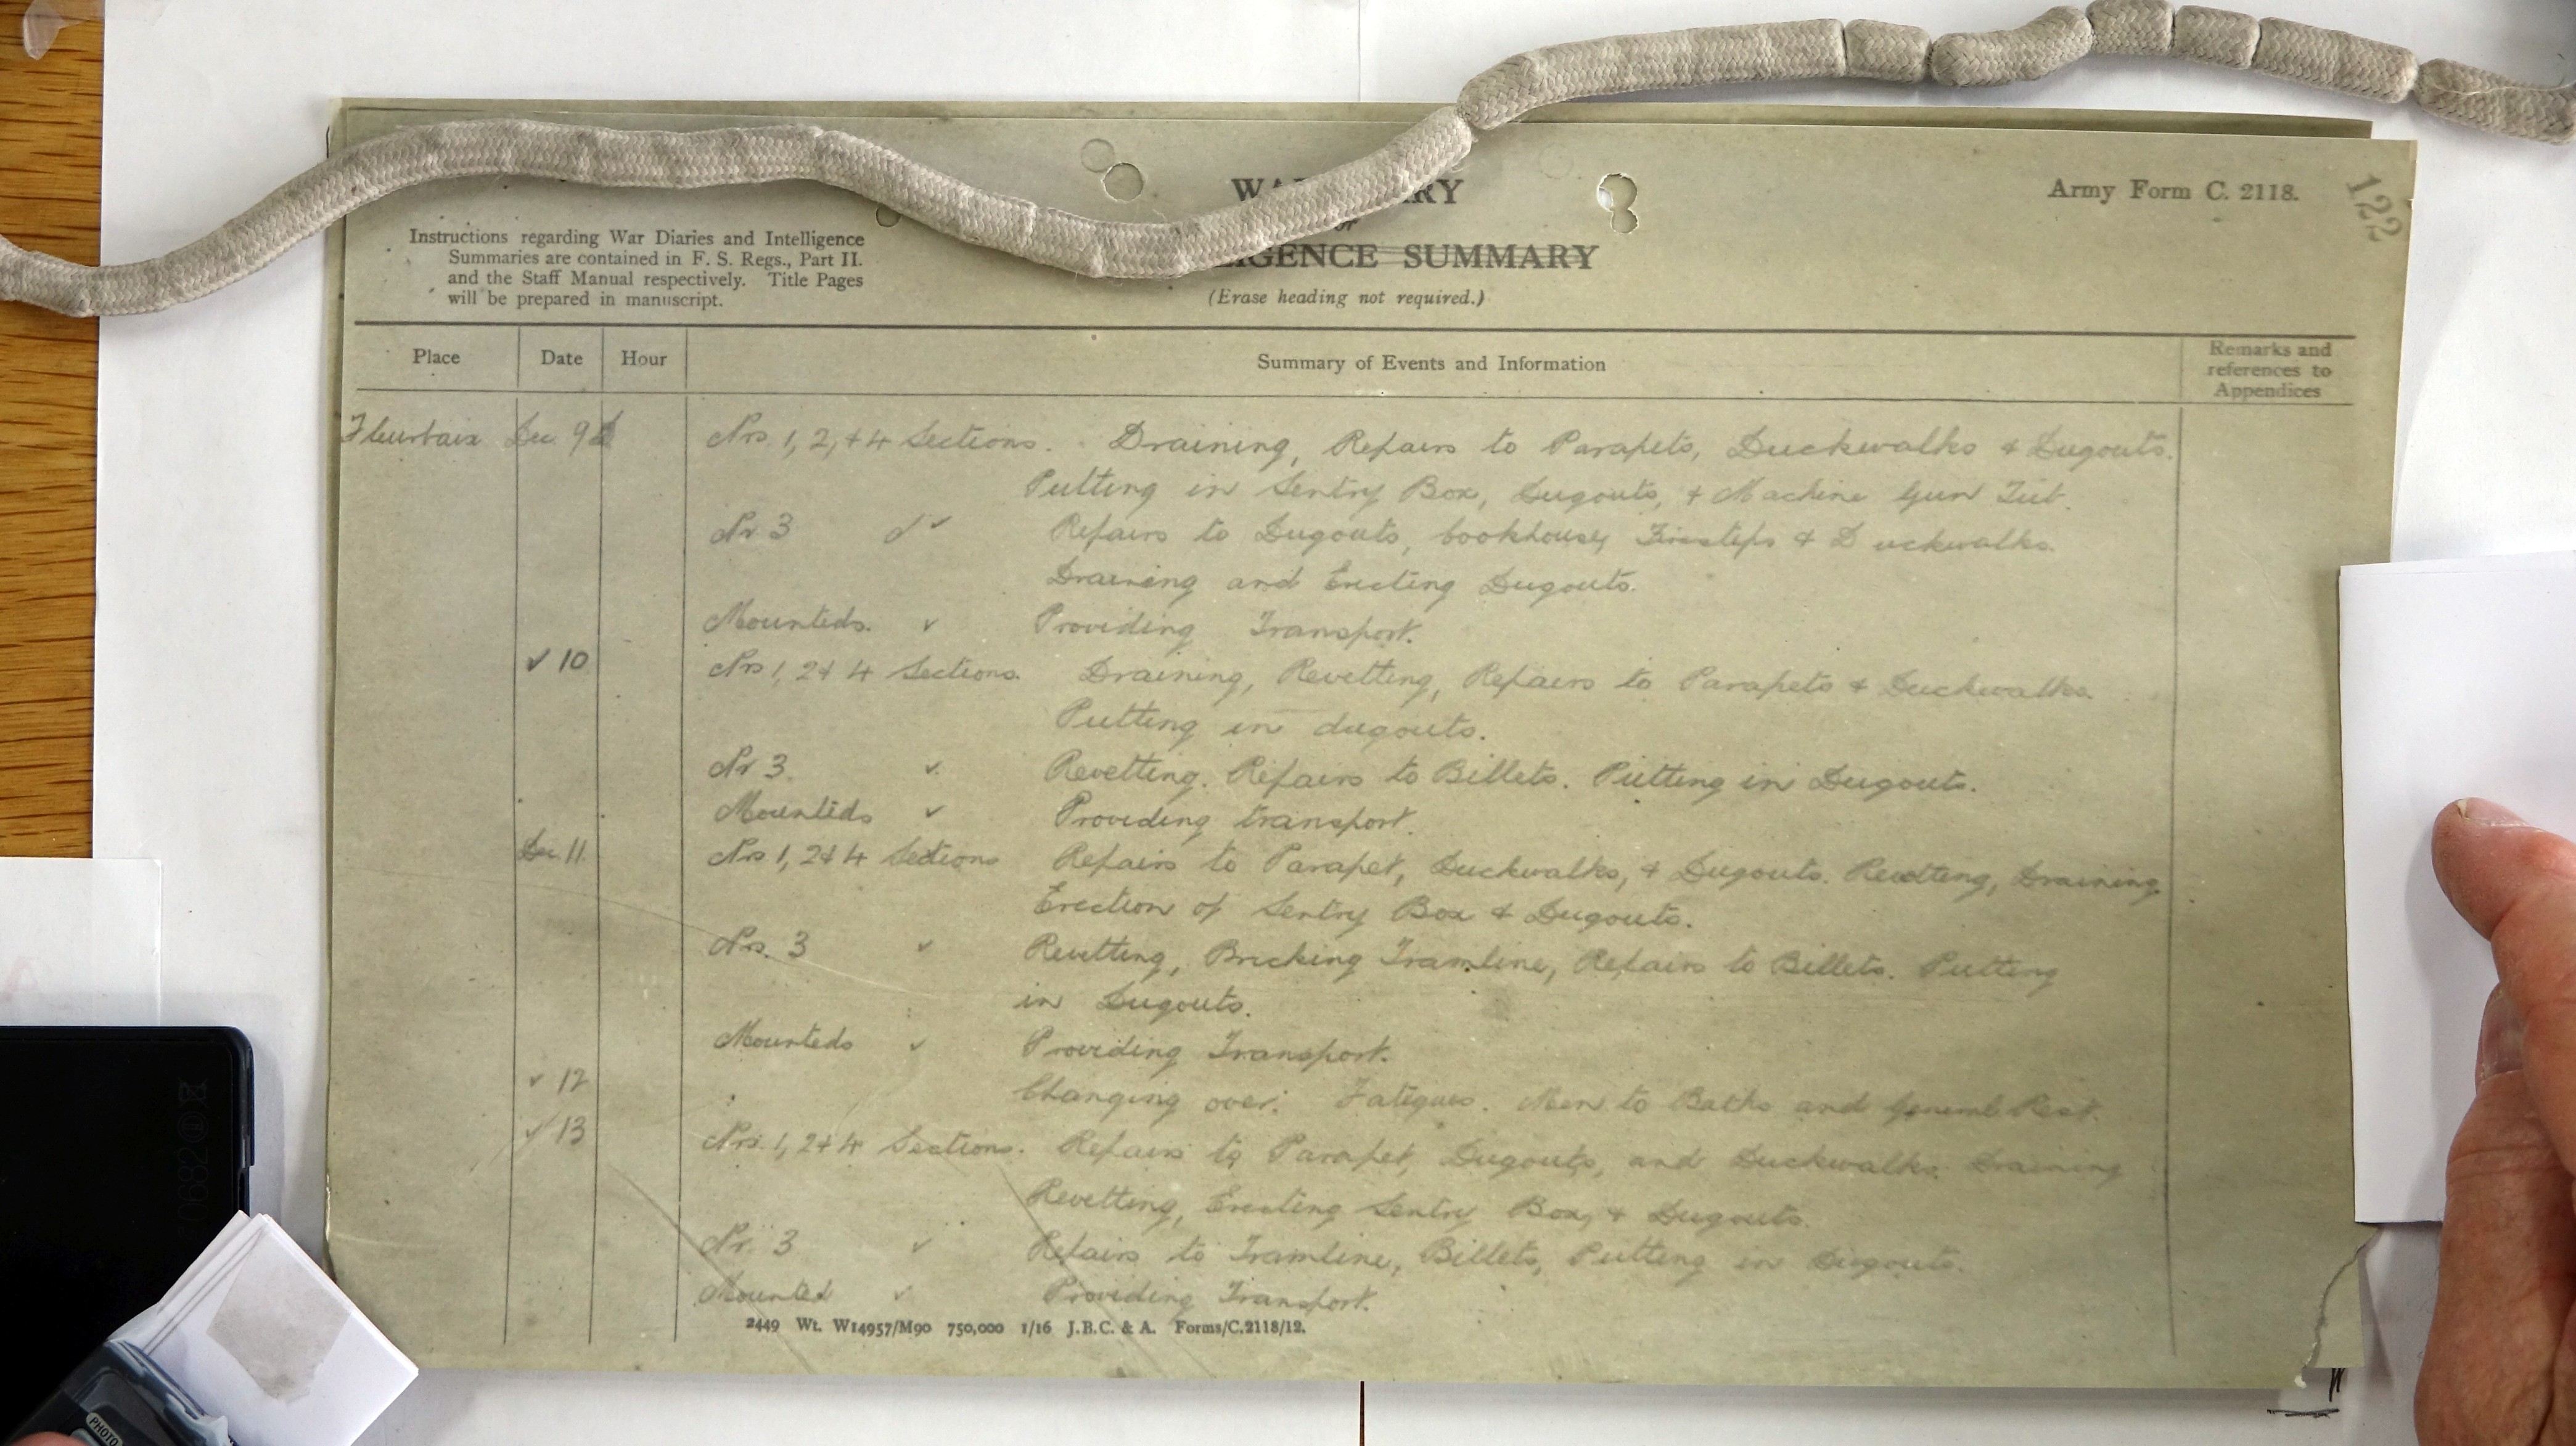 WAR DIARY
or
LIGENCE SUMMARY
(Erase heading not required.)
Army Form C. 2118.
122
Instructions regarding War Diaries and Intelligence
Summaries are contained in F. S. Regs., Part II.
and the Staff Manual respectively. Title Pages
will be prepared in manuscript.
Place Date Hour Summary of Events and Information Remarks and references to Appendices
Fleurbaix Dec. 9 Nrs. 1, 2, & 4 Sections. Draining, Repairs to Parapets, Duckwalks & Dugouts.
Putting in Sentry Box, Dugouts, & Machine Gun
Nr 3 do Repairs to Dugouts, Cookhouses, Firesteps & Duckwalks.
Draining and Erecting Dugouts.
Mounteds. " Providing Transport.
" 10 Nrs 1, 2 & 4 Sections. Draining, Revetting, Repairs to Parapets & Duckwalks.
Putting in dugouts.
Nr 3. " Revetting. Repairs to Billets. Putting in Dugouts.
Mounteds " Providing transport.
Dec 11 Nrs 1, 2 & 4 Sections Repairs to Parapet, Duckwalks, & Dugouts. Revetting, Draining,
Erection of Sentry Box & Dugouts.
Nrs. 3 " Revetting, Bricking Tramline, Repairs to Billets. Putting
in Dugouts.
Mounteds " Providing Transport.
" 12 Changing over. Fatigues. Men to Baths and General Rest.
" 13 Nrs. 1, 2 & 4 Sections. Repairs to Parapet, Dugouts, and Duckwalks. Draining
Revetting, Erecting Sentry Box, & Dugouts.
Nr. 3 " Repairs to Tramline, Billets, Putting in Dugouts.
Mounted " Providing Transport.
2449 Wt. W14957/M90 750,000 1/16 J.B.C. & A. Forms/C.2118/12.
PHOTO